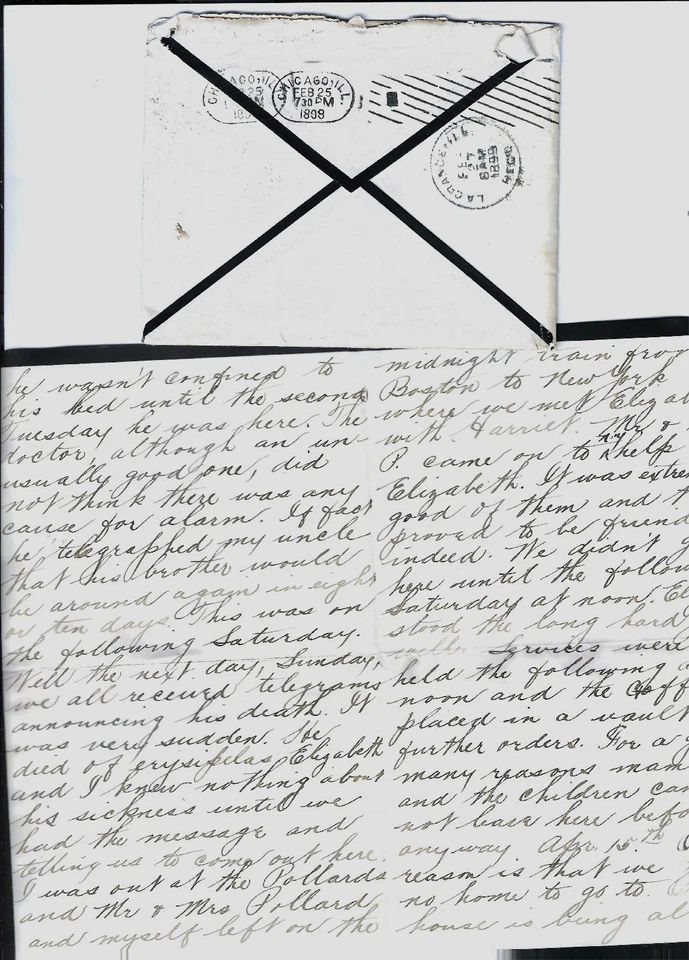 CHICAGO, ILL.
FEB 25
CHICAGO, ILL.
FEB 25
7 30 PM
1899
LA GRANGE ILL
FE
27
8 AM
1899
REC'D
he wasn't confined to
his bed until the second
Tuesday he was here. The
doctor, although an un-
usually good one, did
not think there was any
cause for alarm. If fact
he telegrapped my uncle
that his brother would
be around again in eight
or ten days. This was on
the following Saturday.
Well the next day, Sunday,
we all received telegrams
announcing his death. It
was very sudden. He
died of erysipelas. Elizabeth
and I knew nothing about
his sickness until we
had the message and
telling us to come out here.
I was out at the Pollards
and Mr & Mrs Pollard
and myself left on the
midnight train from
Boston to New York
where we met Elizab
with Harriet. Mr &
P. came on to N.Y. helps
Elizabeth. It was extrem
good of them and
proved to be friend
indeed. We didn't
here until the follow
Saturday at noon. El
stood the long hard
well. Services were
held the following
noon and the coff
placed in a vault
further orders. For a g
many reasons mam
and the children can
not leave here befo
anyway Apr. 15th
reason is that we
no home to go to.
house is being al